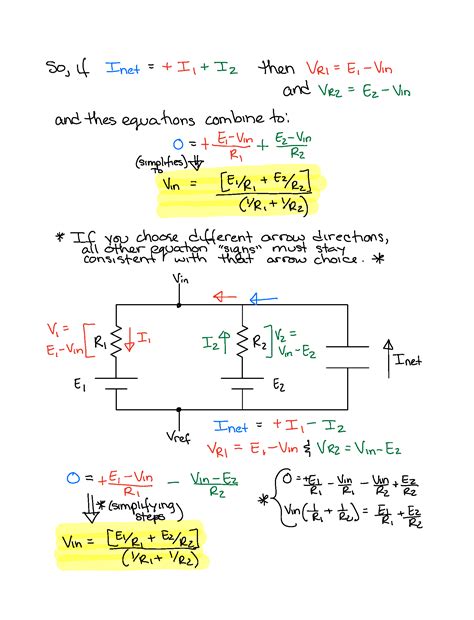 So, if Inet = + I1 + I2 then VR1 = E1 - Vin
and VR2 = E2 - Vin
and thes equations combine to:
0 = + E1-Vin/R1 + E2-Vin/R2
(simplifies to)
Vin = [E1/R1 + E2/R2] / (1/R1 + 1/R2)
* If you choose different arrow directions,
all other equation "signs" must stay
consistent with that arrow choice. *
Vin
V1 =
E1-Vin
R1
I1
I2
R2
V2 =
Vin-E2
Inet
E1
E2
Vref
Inet = + I1 - I2
VR1 = E1 - Vin & VR2 = Vin - E2
0 = + E1-Vin/R1 - Vin-E2/R2
* (simplifying
steps)
Vin = [E1/R1 + E2/R2] / (1/R1 + 1/R2)
*
0 = +E1/R1 - Vin/R1 - Vin/R2 + E2/R2
Vin(1/R1 + 1/R2) = E1/R1 + E2/R2